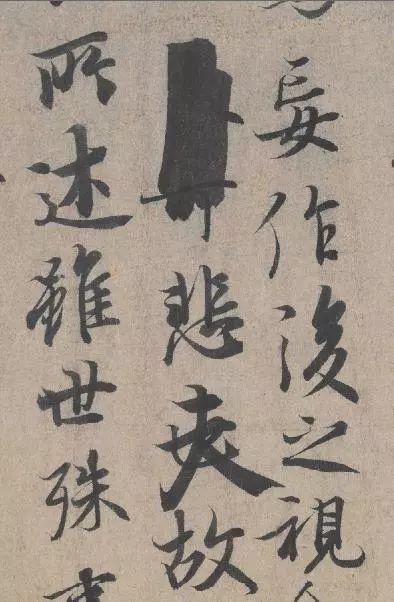 妄作後之視
悲夫故
所述雖世殊